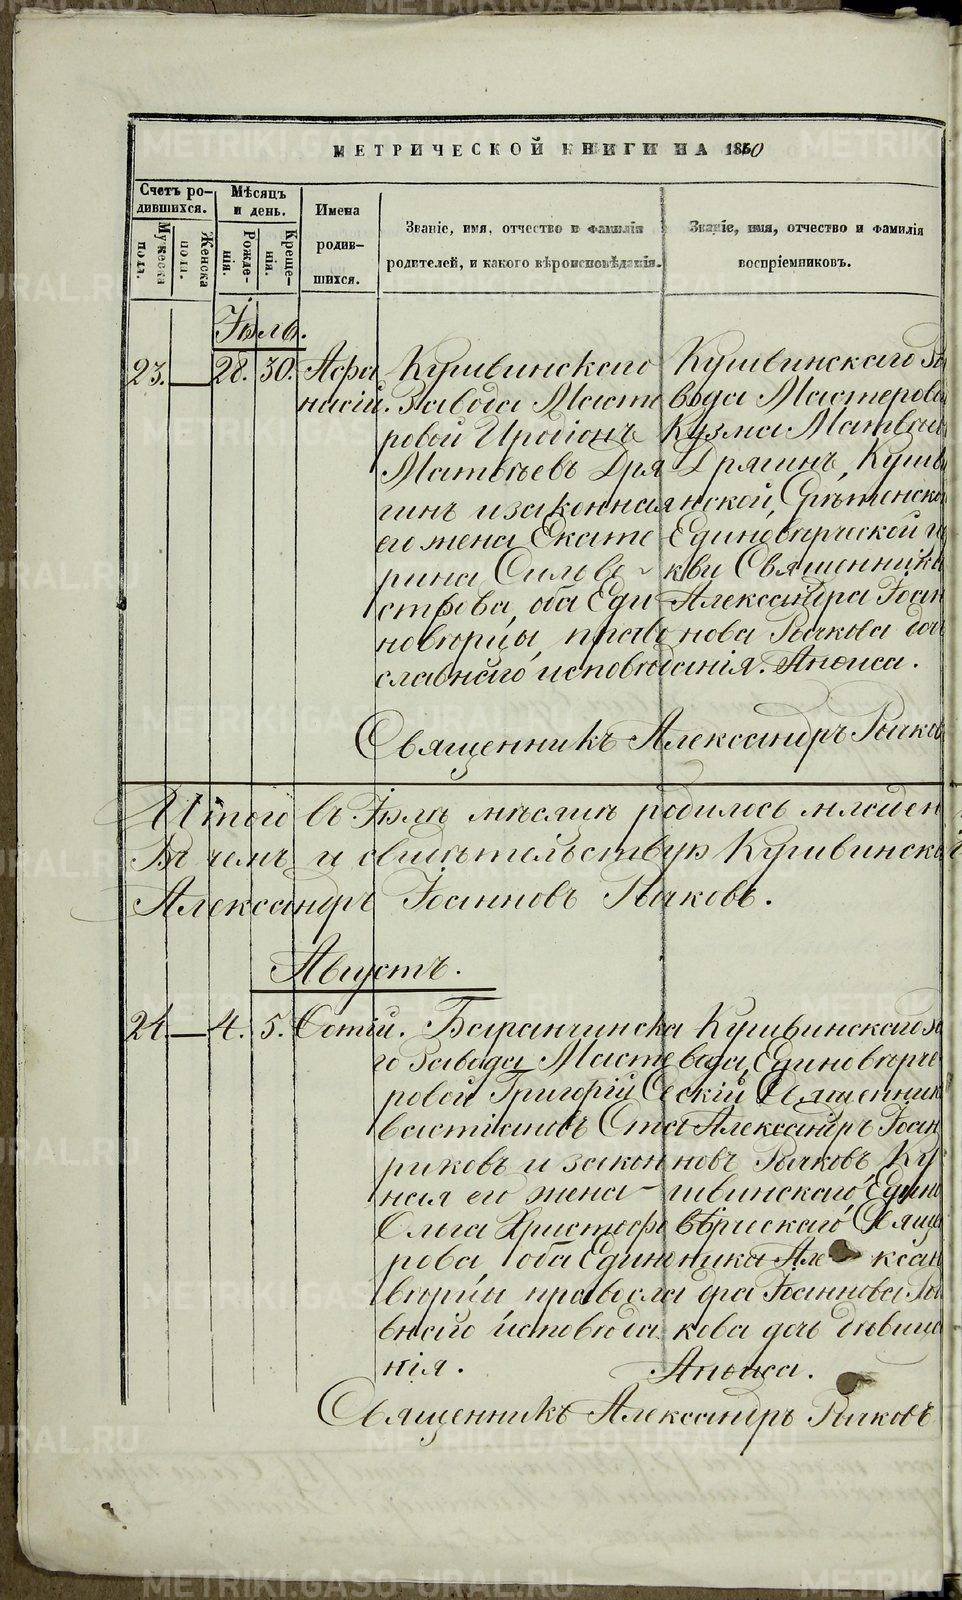 МЕТРИЧЕСКОЙ КНИГИ НА 1850
Счетъ ро-
дившихся.
Мужеска
пола.
Женска
пола.
Мѣсяцъ
и день.
Рожде-
нія.
Креще-
нія.
Имена
родив-
шихся.
Званіе, имя, отчество и фамилія
родителей, и какого вѣроисповѣданія.
Званіе, имя, отчество и фамилія
воспріемниковъ.
Іюль.
23. — 28. 30. Афа
насій.
Кушвинскаго
Завода Масте
ровой Иродіонъ
Матвѣевъ Дря
гинъ и законная
его жена Екате
рина Сильве-
строва, оба Еди
новѣрцы, право
славнаго исповѣданія.
Кушвинскаго За
вода Мастерово
Кузма Матвѣев
Дрягинъ, Кушви
нской, Срѣтенско
Единоверческой ц
кви Священника
Александра Іоан
нова Рычкова доч
Анѳиса.
Священникъ Александръ Рычков
Итого въ Іюлѣ мѣсяцѣ родилось младен
Въ чемъ и свидѣтельствую Кушвинской
Александръ Іоанновъ Рычковъ.
Августъ.
24. — 4. 5. Сотій.
Баранчинска
го Завода Масте
ровой Григорій Се
вастіановъ Ста
риковъ и закон
ная его жена
Ольга Христофо
рова, оба Едино
вѣрцы православ
внаго исповѣда
нія.
Кушвинскаго за
вода, Единовѣрче
скій Священник
Александръ Іоан
новъ Рычковъ, Ку
швинскаго Едино
вѣрискаго Свяще
ника Але ксан
дра Іоаннова Ры
кова дочь дѣвица
Анѳиса.
Священникъ Александръ Рычковъ
METRIKI.GASO-URAL.RU